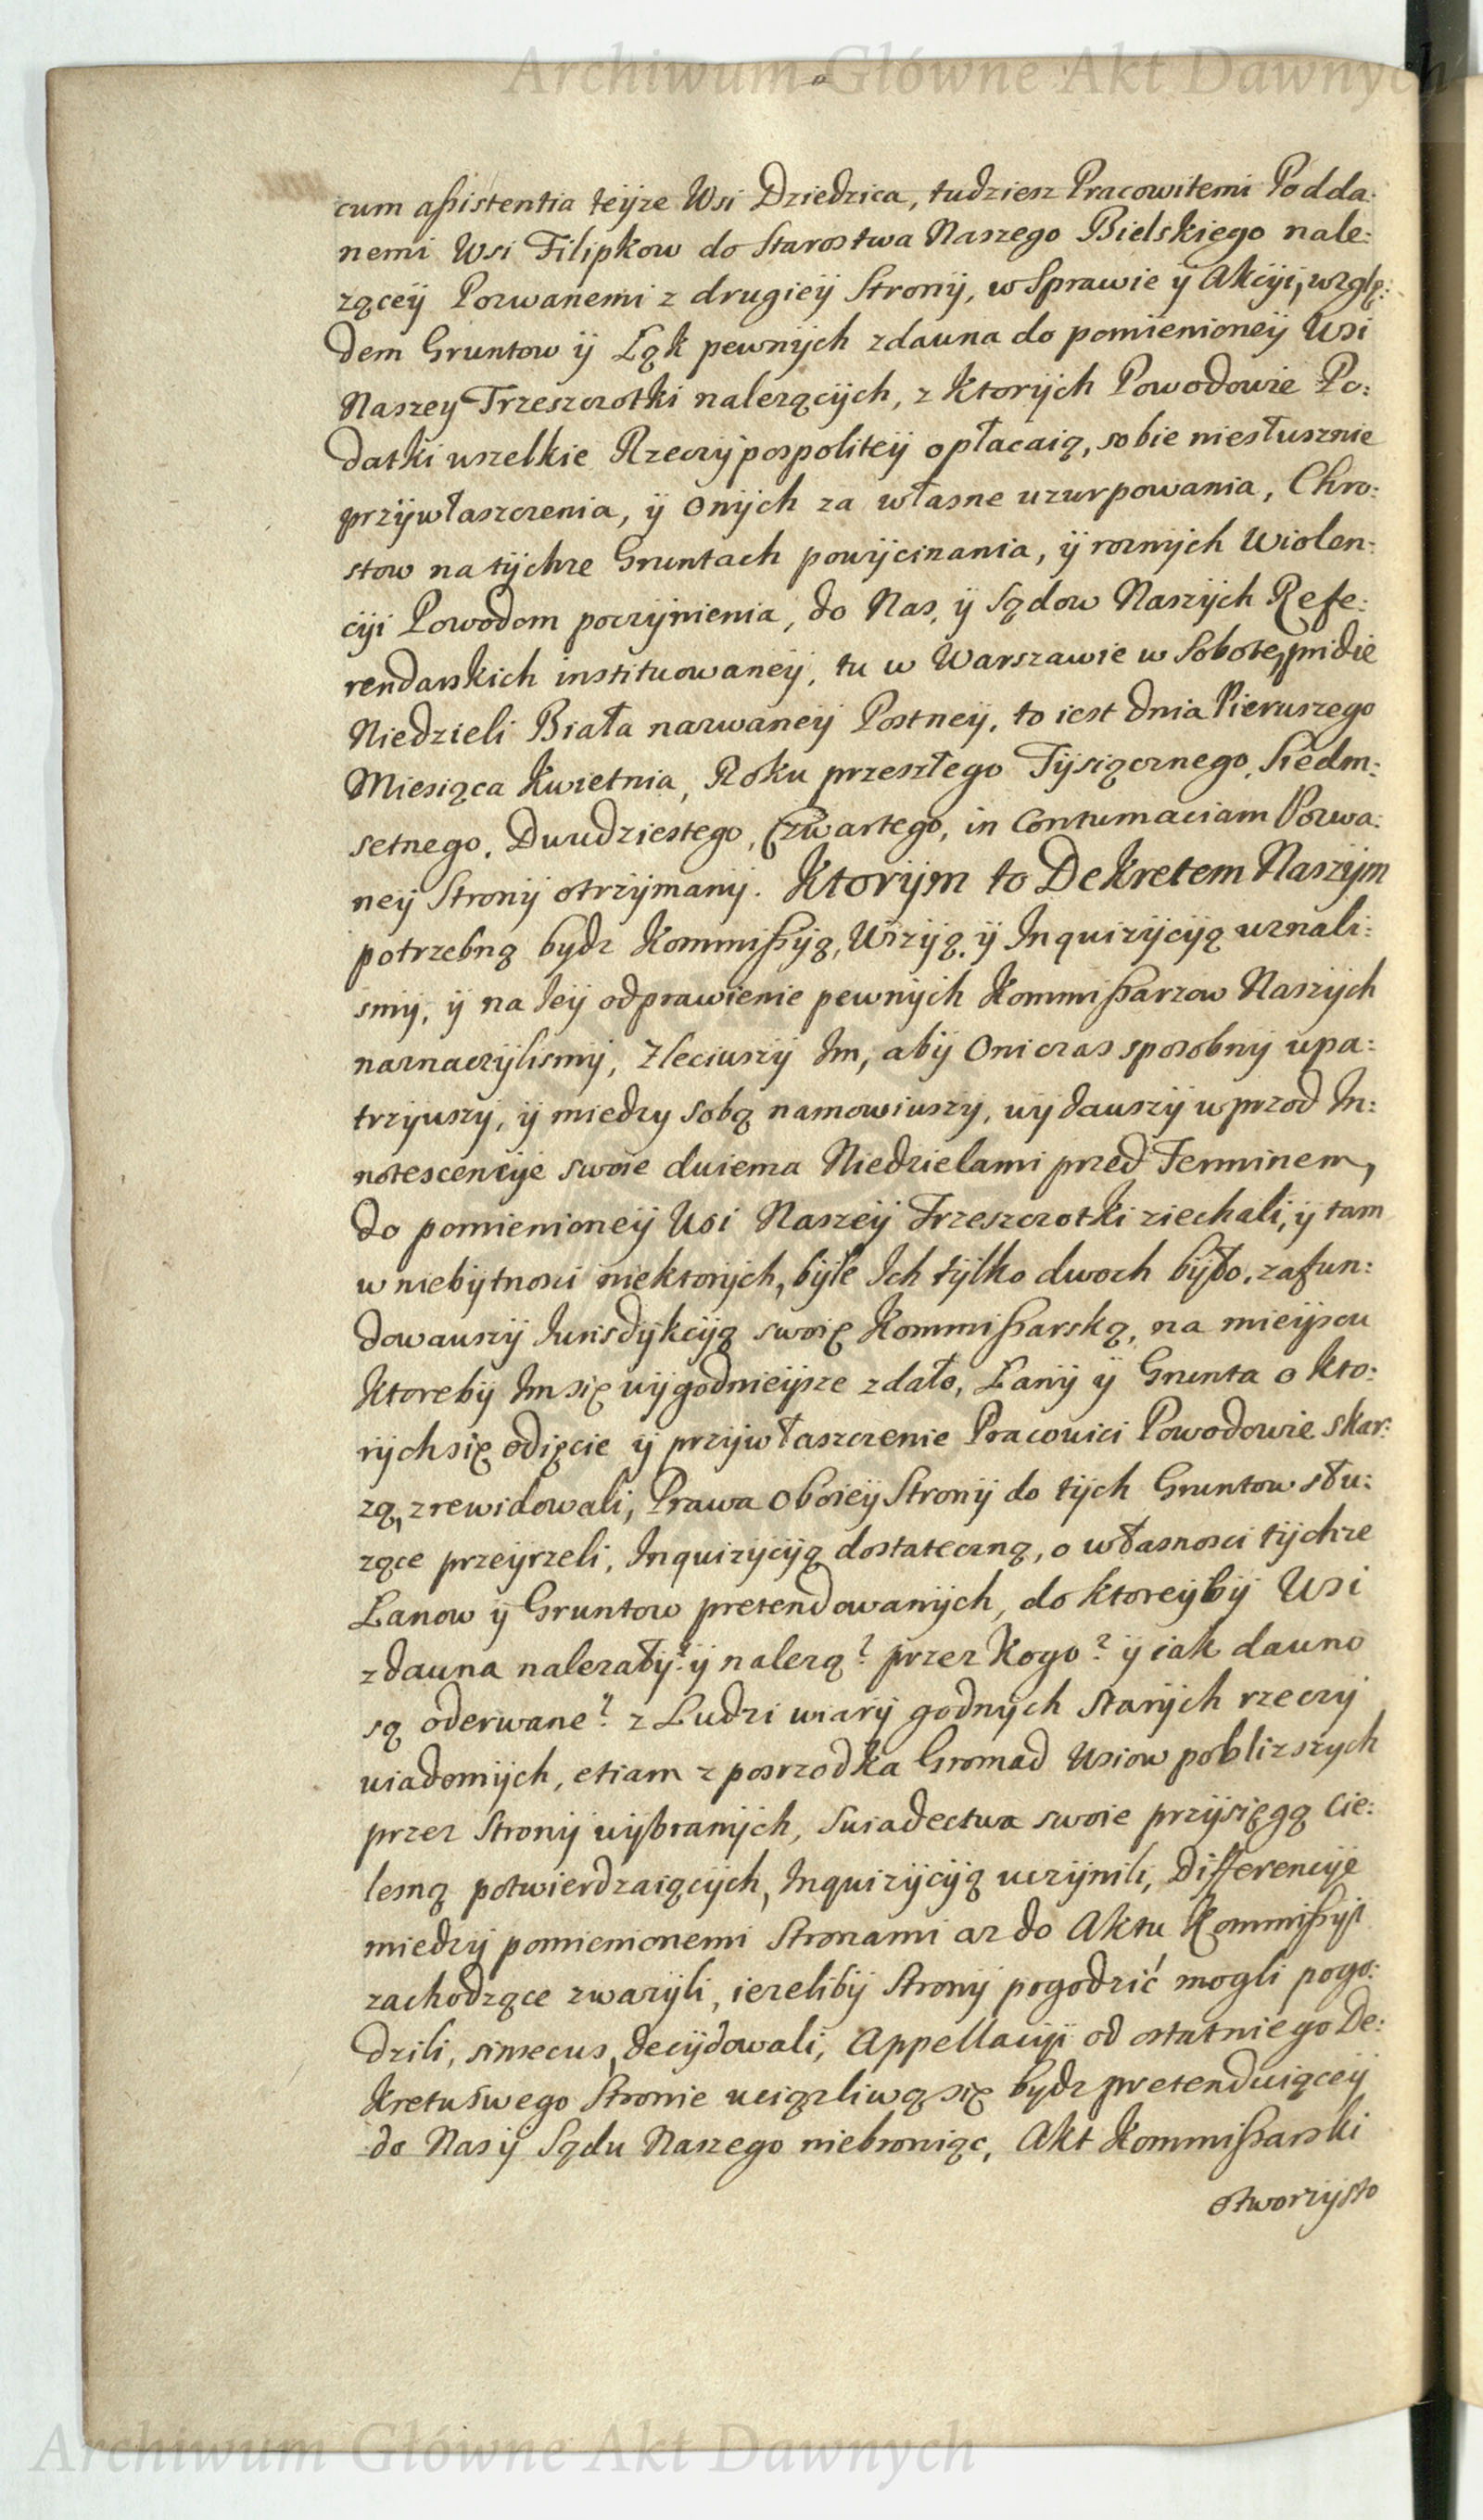 Archiwum Główne Akt Dawnych
cum assistentia teyze Wsi Dziedzica, tudziesz Pracowitemi Podda:
nemi Wsi Filipkow do Starostwa Naszego Bielskiego nale:
zącey Pozwanemi z drugiey Strony, w Sprawie y Akcyi, wzglę:
dem Gruntow y Łąk pewnych zdawna do pomienioney Wsi
Naszey Trzeszczotki nalezących, z Ktorych Powodowie Po:
datki wszelkie Rzeczypospolitey opłacaią, sobie niesłusznie
przywłaszczenia, y Onych za własne uzurpowania, Chro:
stow na tychze Gruntach powycinania, y roznych Wiolen:
cyi Powodom poczynienia, do Nas, y Sądow Naszych Refe:
rendarskich instituowaney, tu w Warszawie w Sobotę, pridie
Niedzieli Biała nazwaney Postney, to iest dnia Pierwszego
Miesiąca Kwietnia, Roku przeszłego Tysiącznego, Siedm:
setnego, Dwudziestego, Czwartego, in Contumaciam Pozwa:
ney Strony otrzymany. Ktorym to Dekretem Naszym
potrzebną bydz Kommissyą, Wizyą, y Inquizycyą uznali:
smy, y na Iey odprawienie pewnych Kommissarzow Naszych
naznaczylismy, Zleciwszy Im, aby Oni czas sposobny upa:
trzywszy, y miedzy sobą namowiwszy, wydawszy wprzod In:
notescencye swoie dwiema Niedzielami przed Terminem,
do pomienioney Wsi Naszey Trzeszczotki ziechali, y tam
w niebytnosci niektorych, byłe Ich tylko dwoch było, zafun:
dowawszy Iurisdykcyą swoię Kommissarską, na mieyscu
Ktoreby Im się wygodnieysze zdało, Łany y Grunta o kto:
rych się odięcie y przywłaszczenie Pracowici Powodowie skar:
zą, zrewidowali, Prawa oboiey Strony do tych Gruntow słu:
zące przeyrzeli, Inquizycyą dostateczną, o własnosci tychze
Łanow y Gruntow pretendowanych, do ktoreyby Wsi
zdawna nalezały? y nalezą? przez Kogo? y iak dawno
są oderwane? z Ludzi wiary godnych starych rzeczy
wiadomych, etiam z posrzodka Gromad Wsiow poblizszych
przez Strony wybranych, Swiadectwa swoie przysięgą cie:
lesną potwierdzaiących, Inquizycyą uczynili, Differencye
miedzy pomienionemi Stronami az do Aktu Kommissyi
zachodzące zwazyli, iezeliby Strony pogodzić mogli pogo:
dzili, sin secus, decydowali, Appellacyi od ostatniego De:
kretu swego Stronie uciązliwą się bydz pretenduiącey
do Nas y Sądu Naszego niebroniąc, Akt Kommissarski
otworzysto
Archiwum Główne Akt Dawnych